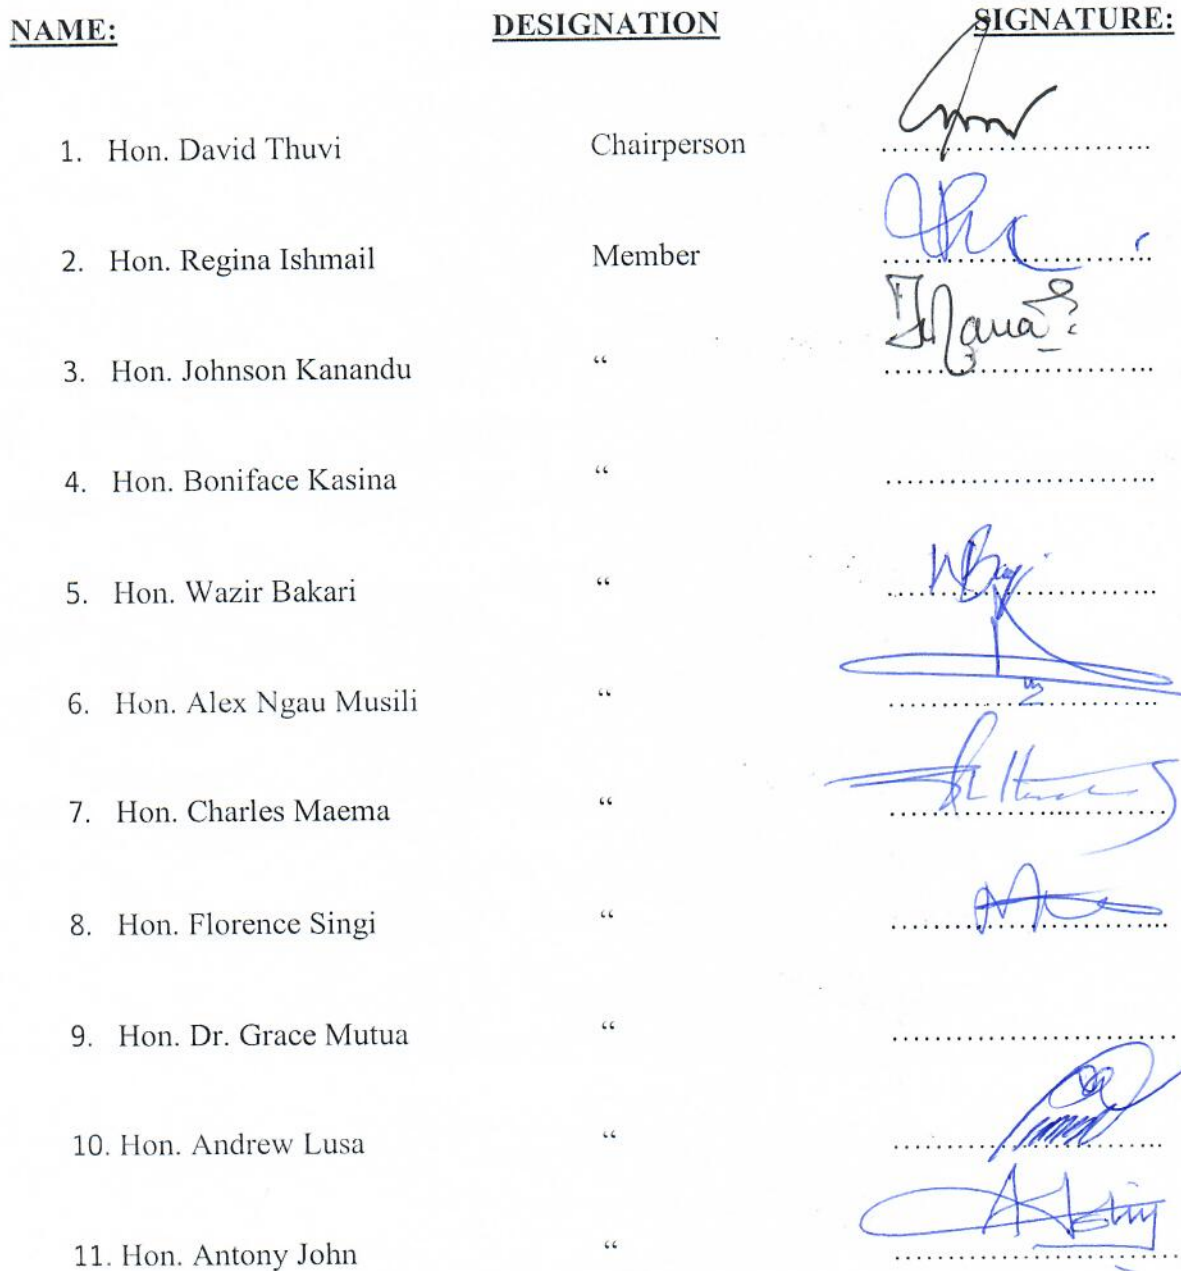 NAME: DESIGNATION SIGNATURE:
1. Hon. David Thuvi Chairperson ............................
2. Hon. Regina Ishmail Member ............................
3. Hon. Johnson Kanandu “ ............................
4. Hon. Boniface Kasina “ ............................
5. Hon. Wazir Bakari “ ............................
6. Hon. Alex Ngau Musili “ ............................
7. Hon. Charles Maema “ ............................
8. Hon. Florence Singi “ ............................
9. Hon. Dr. Grace Mutua “ ............................
10. Hon. Andrew Lusa “ ............................
11. Hon. Antony John “ ............................